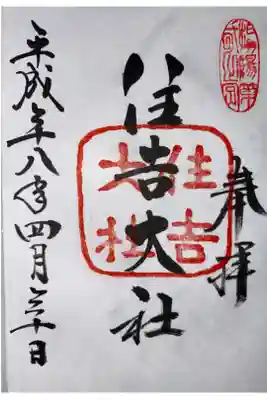 奉拝
住吉大社
住吉
大社
平成 八年四月 十日